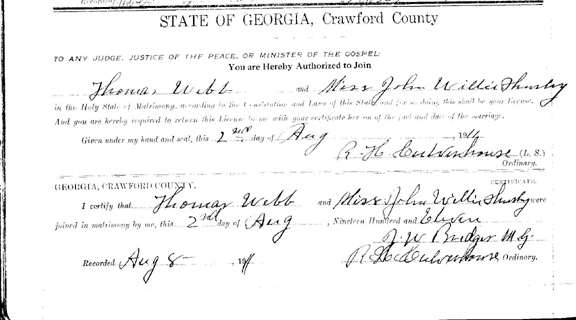 STATE OF GEORGIA, Crawford County
TO ANY JUDGE, JUSTICE OF THE PEACE, OR MINISTER OF THE GOSPEL:
You are Hereby Authorized to Join
Thomas Webb and Miss John Willie
in the Holy State of Matrimony, according to the Constitution and Laws of this State, and for so doing this shall be your License.
And you are hereby required to return this License to me with your certificate hereon of the fact and date of the marriage.
Given under my hand and seal, this 2nd day of Aug 1911
R. H. Culverhouse (L. S.)
Ordinary.
CERTIFICATE.
GEORGIA, CRAWFORD COUNTY.
I certify that Thomas Webb and Miss John Willie were
joined in matrimony by me, this 2nd day of Aug, Nineteen Hundred and Eleven
J. W. Bridges M. G.
Recorded Aug 8 1911 R. H. Culverhouse Ordinary.